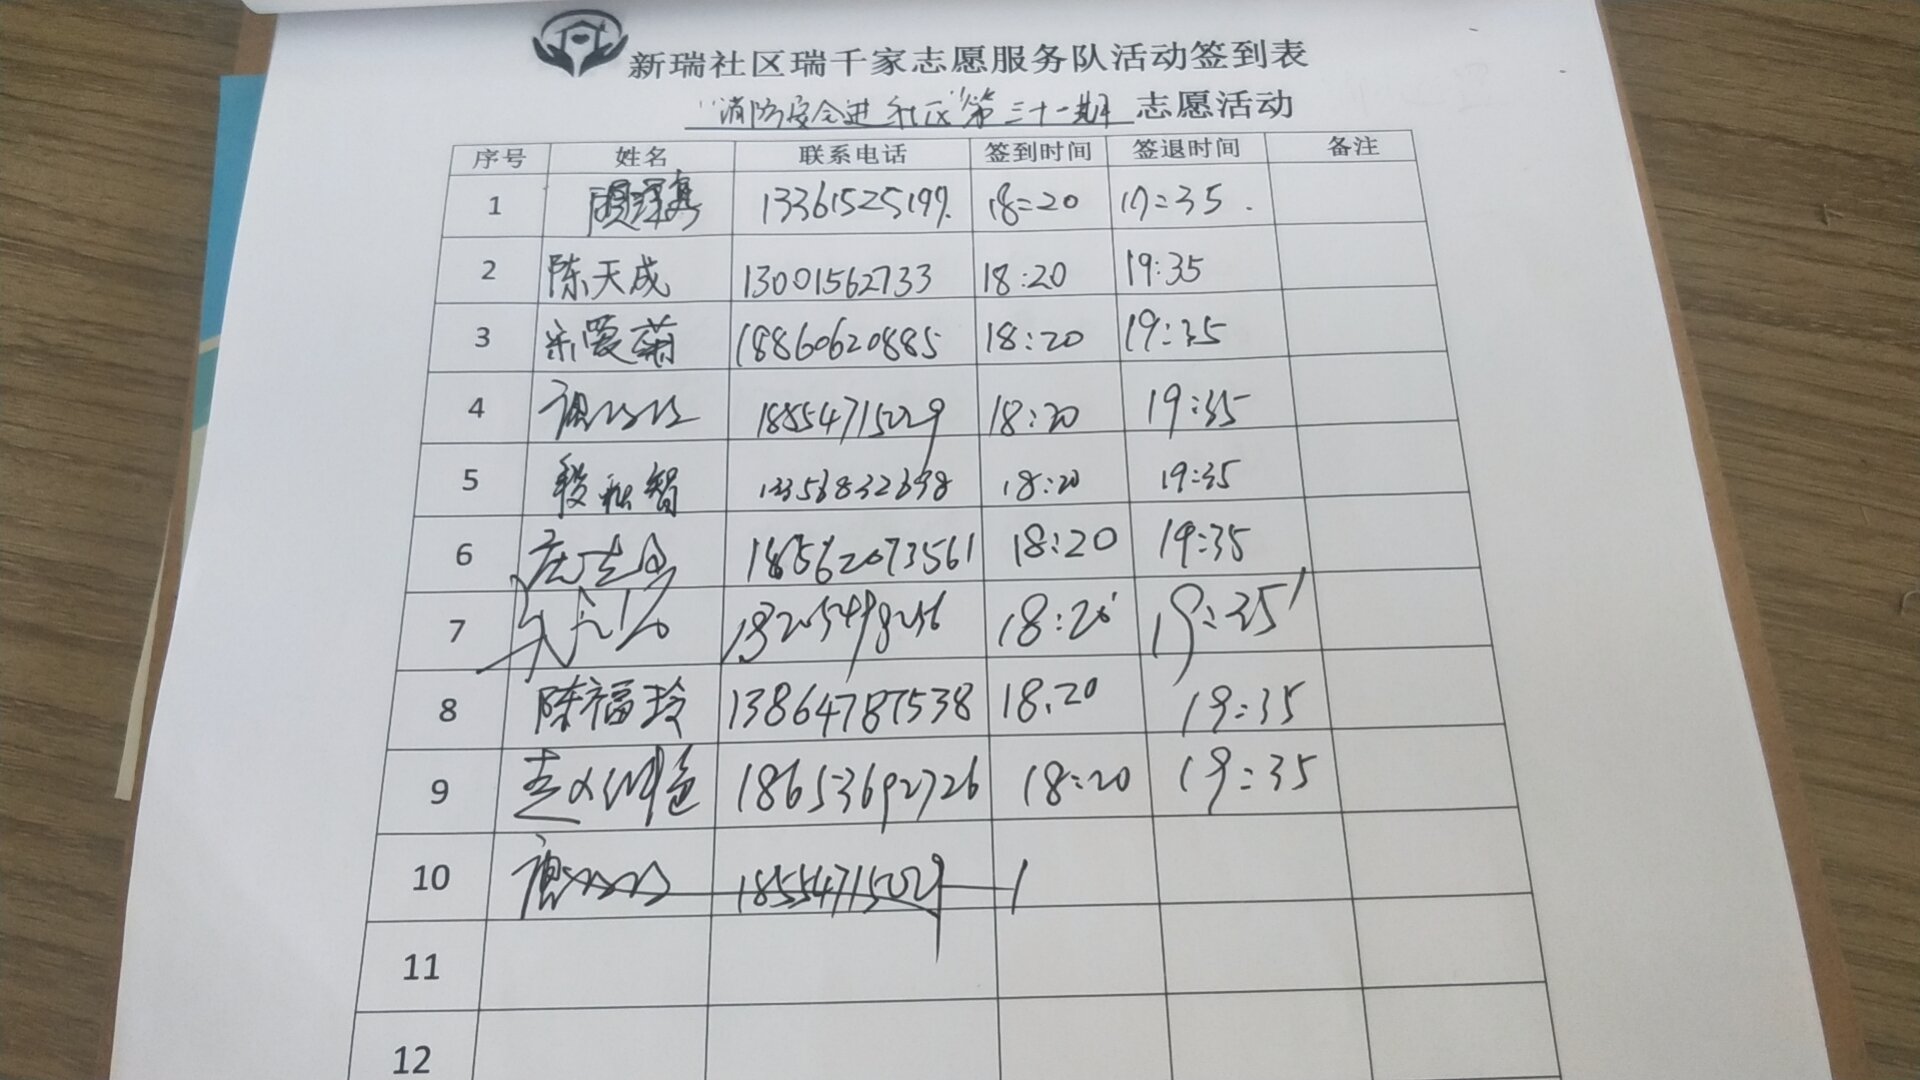 新瑞社区瑞千家志愿服务队活动签到表
"消防安全进社区"第三十一期 志愿活动
序号 姓名 联系电话 签到时间 签退时间 备注
1 13361525197. 18:20 19:35.
2 陈天成 13001562733 18:20 19:35
3 宋爱菊 18860620885 18:20 19:35
4 18554715029 18:20 19:35
5 18:20 19:35
6 18562073561 18:20 19:35
7 18:20 19:35
8 陈福玲 13864787538 18:20 19:35
9 18653692726 18:20 19:35
10 18554715029 1
11
12